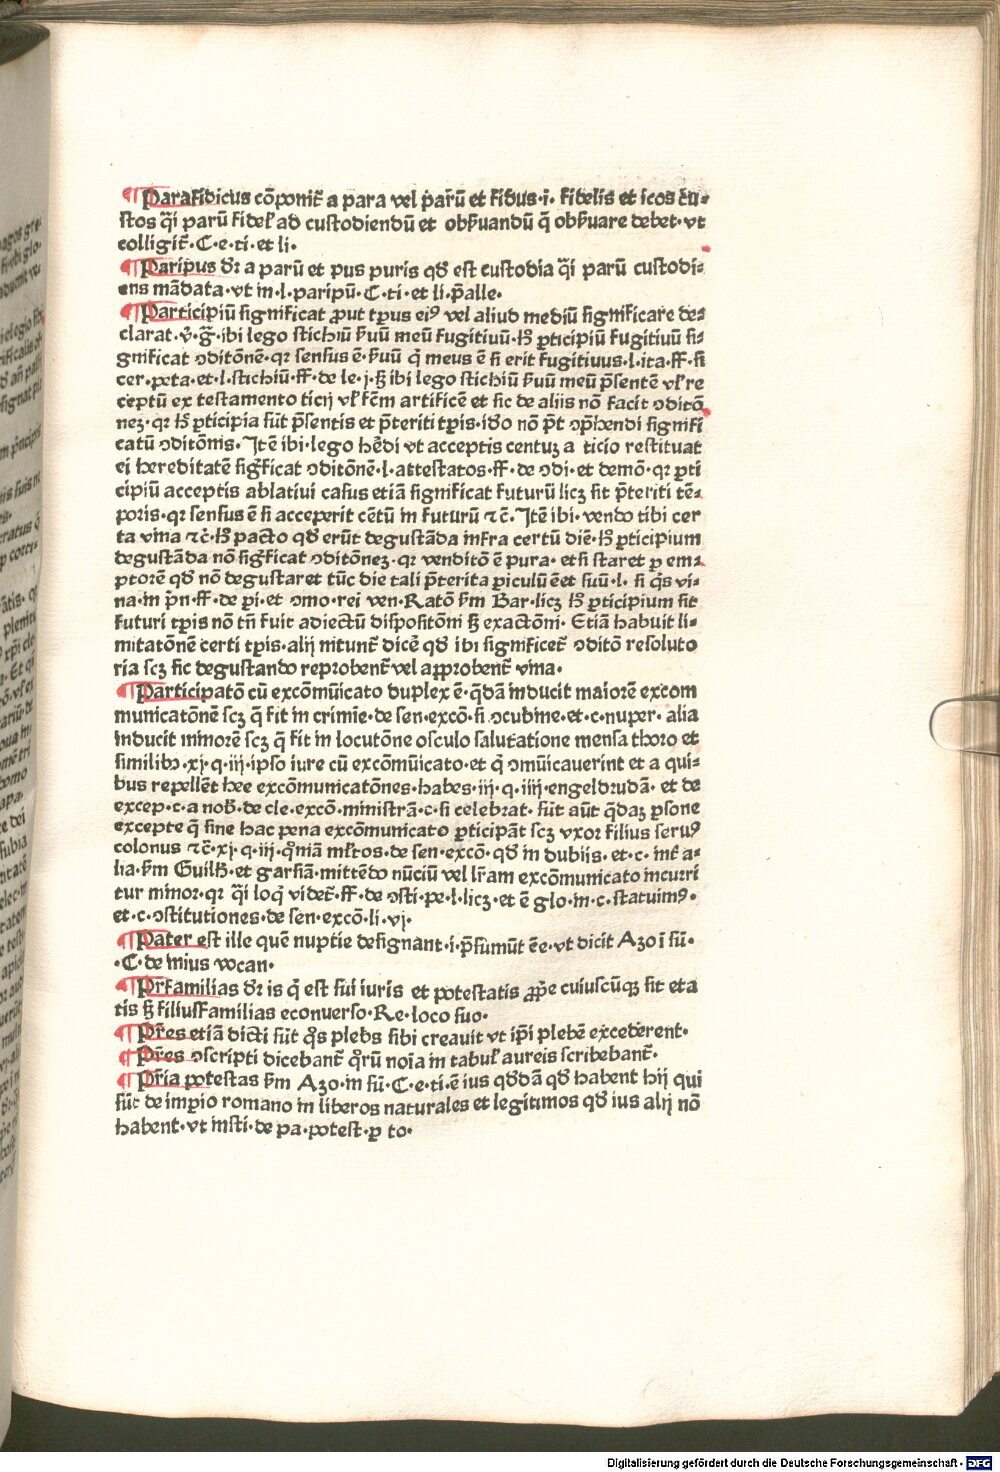 ¶Parafidicus cōponit̄ a para vel parū et fidus·i· fidelis et icos cu-
stos q̄i parū fidel' ad custodiendū et obẜuandū q̄ obẜuare debet·vt
colligit̄·C·e·ti·et li·
¶Paripus dr̄ a parū et pus puris qd̄ est custodia q̄i parū custodi-
ens mādata·vt in·l·paripū·C·ti·et li·p̄alle·
¶Participiū significat ꝓut tꝑus eiꝰ vel aliud mediū significare des
clarat·v̄·g̅·ibi lego stichiū ẜuū meū fugitiuū·hꝫ ꝑticipiū fugitiuū si-
gnificat ꝯditōnē·qꝛ sensus ē·ẜuū q̄ meus ē si erit fugitiuus·l·ita·ff·si
cer·peta·et·l·stichiū·ff·de le·j·ꝫ ibi lego stichiū ẜuū meū p̄sentē vl' re
ceptū ex testamento ticij vl' fēm artificē et sic de aliis nō facit ꝯditō
neꝫ·qꝛ hꝫ ꝑticipia sūt p̄sentis et p̄teriti tꝑis·ido nō p̄t ꝯp̄hendi signifi
catū ꝯditōnis·Itē ibi·lego hēdi vt acceptis centuꝫ a ticio restituat
ei hereditatē sigficat ꝯditōnē·l·attestatos·ff·de ꝯdi·et demō·qꝛ ꝑti
cipiū acceptis ablatiui casus etiā significat futurū licꝫ sit p̄teriti tē-
poris·qꝛ sensus ē si acceperit cētū in futurū ⁊c̄·Itē ibi·vendo tibi cer
ta vina ⁊c̄·hꝫ pacto qd̄ erūt degustāda infra certū diē·hꝫ ꝑticipium
degustāda nō sigficat ꝯditōneꝫ·qꝛ venditō ē pura·etsi staret ꝑ em-
ptorē qd̄ nō degustaret tūc die tali p̄terita ꝑiculū eēt suū·l· si q̄s vi-
na·in p̄n·ff·de ꝑi·et ꝯmo·rei ven·Ratō ẜm Bar·licꝫ hꝫ ꝑticipium sit
futuri tꝑis nō tn̄ fuit adiectū dispositōni ꝫ exactōni· Etiā habuit li-
mitatōnē certi tꝑis·alij nitunt̄ dicē qd̄ ibi significet̄ ꝯditō resoluto
ria scꝫ sic degustando reprobent̄ vel approbent̄ vina·
¶Participatō cū excōmūicato duplex ē·q̄dā inducit maiorē excom
municatōnē scꝫ q̄ fit in crimīe·de sen·excō·si ꝯcubine·et·c·nuper· alia
inducit minorē scꝫ q̄ fit in locutōne osculo salutatione mensa thoro et
similibꝫ·xj·q·iij·ipso iure cū excōmūicato·et q̄ ꝯmūicauerint et a qui-
bus repellēt hee excōmunicatōnes·habes·iij·q·iiij·engeldrudā· et de
excep·c·a nob̄·de cle·excō·ministrā·c·si celebrat· sūt aūt q̄daꝫ ꝑsone
excepte q̄ sine hac pena excōmunicato ꝑticipāt scꝫ vxor filius seruꝰ
colonus ⁊c̄·xj·q·iij·qm̄ā ml̄tos·de sen·excō·qd̄ in dubiis·et·c·int̄ a-
lia·ẜm Guilh̄·et garsiā·mittēdo nūciū vel lr̄am excōmunicato incurri
tur minor·qꝛ q̄i loq̄ videt̄·ff·de ꝯsti·pe·l·licꝫ·et ē glo·in·c·statuimꝰ·
et·c·ꝯstitutiones·de sen·excō·li·vj·
¶Pater est ille quē nuptie designant·i·p̄sumūt eē·vt dicit Azo i sū·
·C·de inius vocan·
¶Pr̄familias dr̄ is q̄ est sui iuris et potestatis ꝓp̄e cuiuscūqꝫ sit eta
tis ꝫ filiusfamilias econuerso·Re·loco suo·
¶Pr̄es etiā dicti sūt q̄s plebs sibi creauit vt ip̄i plebē excederent·
¶Pr̄es ꝯscripti dicebant̄ qr̄ū noīa in tabul' aureis scribebant̄·
¶Pr̄ia potestas ẜm Azo·in sū·C·e·ti·ē ius qd̄dā qd̄ habent hij qui
sūt de imꝑio romano in liberos naturales et legitimos qd̄ ius alij nō
habent·vt insti·de pa·potest·ꝑ to·
Digitalisierung gefördert durch die Deutsche Forschungsgemeinschaft - DFG